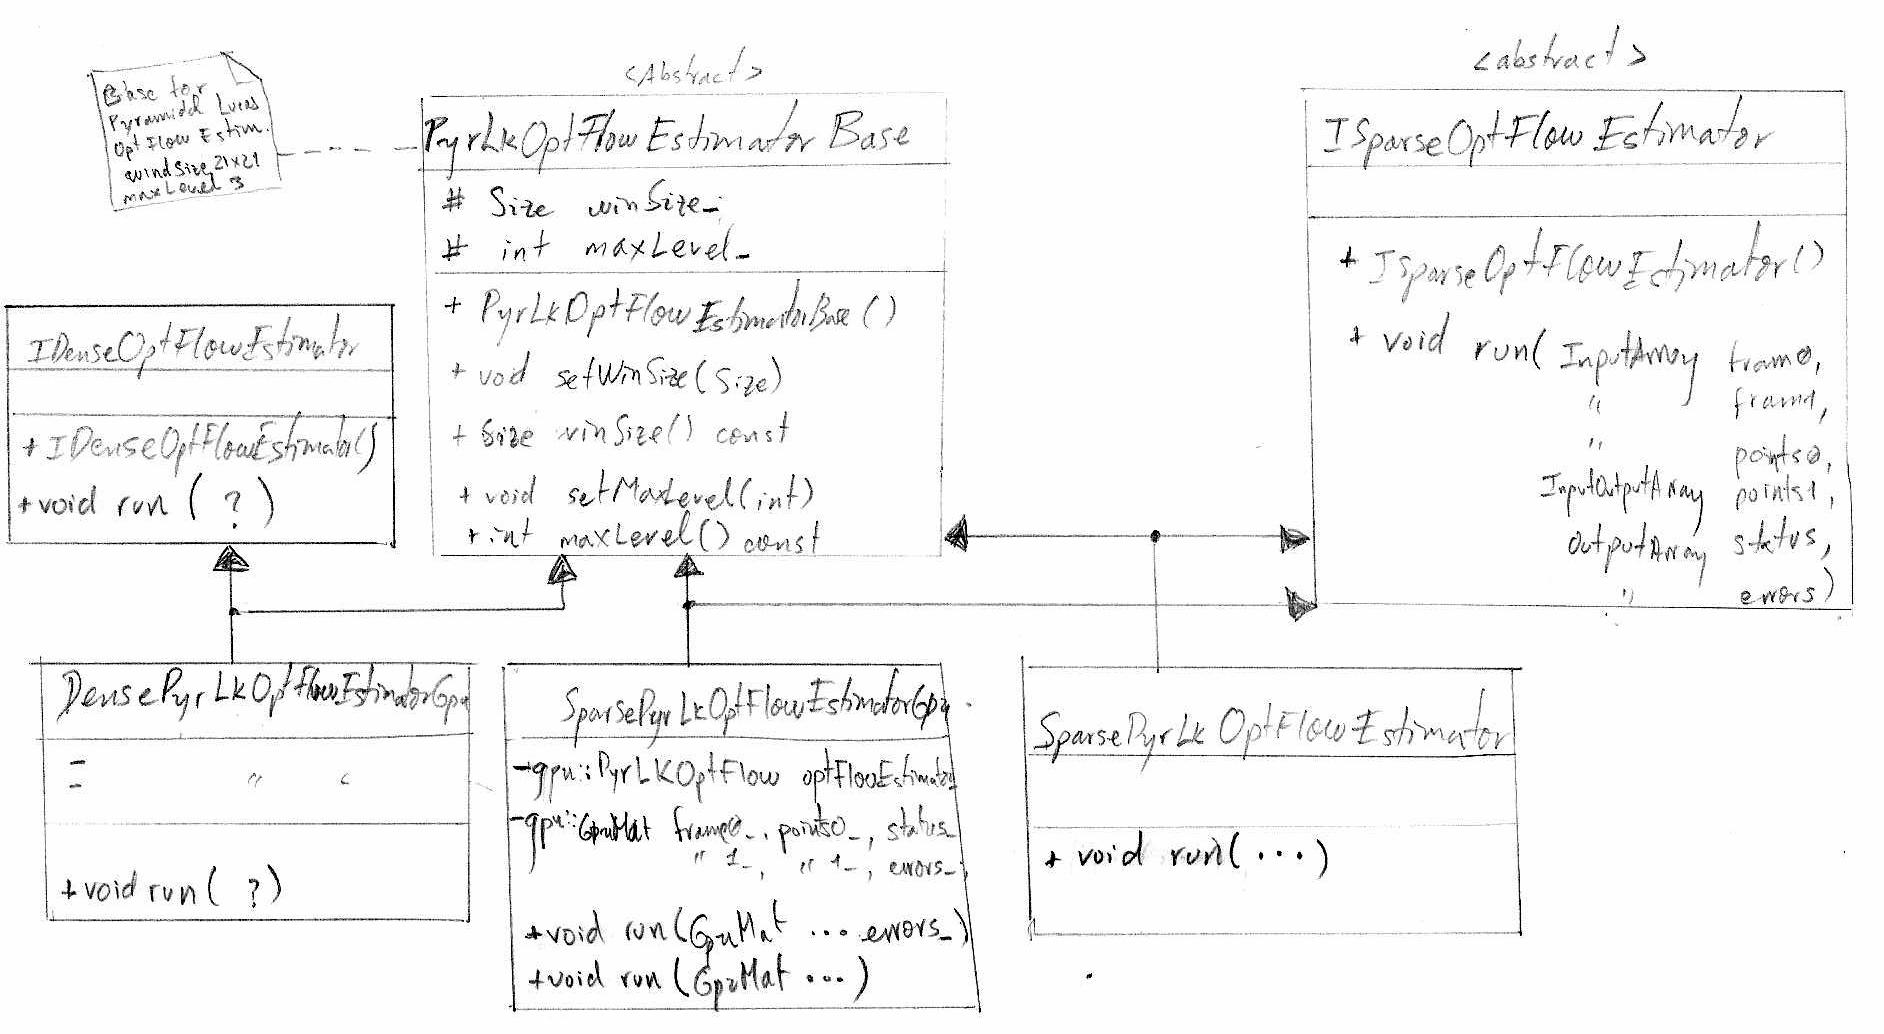 Base for
Pyramidal Lucas
Opt Flow Estim.
windSize 21x21
maxLevel 3
<Abstract>
PyrLkOptFlowEstimatorBase
# Size winSize_;
# int maxLevel_
+ PyrLkOptFlowEstimatorBase()
+ void setWinSize(Size)
+ Size winSize() const
+ void setMaxLevel(int)
+ int maxLevel() const
<abstract>
ISparseOptFlowEstimator
+ ISparseOptFlowEstimator()
+ void run( InputArray frame0,
" frame1,
" points0,
InputOutputArray points1,
OutputArray status,
" errors)
IDenseOptFlowEstimator
+ IDenseOptFlowEstimator()
+ void run ( ? )
DensePyrLkOptFlowEstimatorGpu
- " "
-
+ void run ( ? )
SparsePyrLkOptFlowEstimatorGpu
- gpu::PyrLKOptFlow optFlowEstimator_
- gpu::GpuMat frame0_, points0_, status_
" 1_, " 1_, errors_;
+ void run (GpuMat ... errors_)
+ void run (GpuMat ...)
SparsePyrLkOptFlowEstimator
+ void run(...)